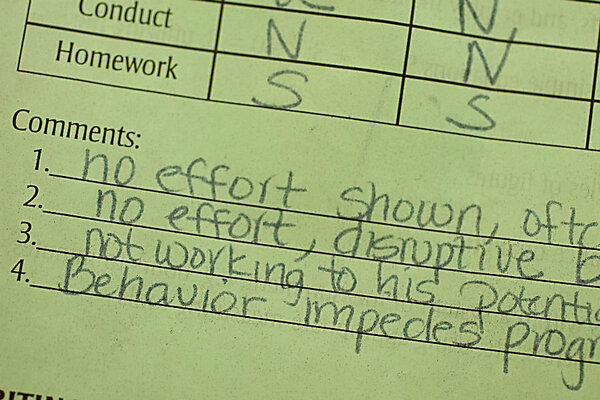 Conduct N N
Homework S S
Comments:
1. no effort shown, ofte
2. no effort, disruptive b
3. not working to his potentia
4. Behavior impedes progr